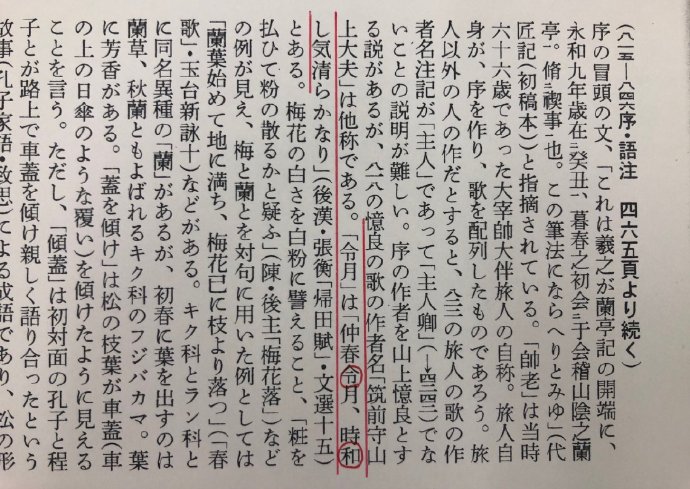 (八一五―八四六序・語注 四六五頁より続く)
序の冒頭の文、「これは羲之が蘭亭記の開端に、
永和九年歳在癸丑、暮春之初会于会稽山陰之蘭
亭。脩禊事也。この筆法にならへりとみゆ」(代
匠記(初稿本))と指摘されている。「帥老」は当時
六十六歳であった大宰帥大伴旅人の自称。旅人自
身が、序を作り、歌を配列したものであろう。旅
人以外の人の作だとすると、八二二の旅人の歌の作
者名注記が「主人」であって「主人卿」(→四二四二)でな
いことの説明が難しい。序の作者を山上憶良とす
る説があるが、八一八の憶良の歌の作者名「筑前守山
上大夫」は他称である。「令月」は「仲春令月、時和
し気清らかなり」(後漢・張衡「帰田賦」・文選十五)
とある。梅花の白さを白粉に譬えること、「粧を
払ひて粉の散るかと疑ふ」(陳・後主「梅花落」)など
の例が見え、梅と蘭とを対句に用いた例としては
「蘭葉始めて地に満ち、梅花已に枝より落つ」(「春
歌」・玉台新詠十)などがある。キク科とラン科と
に同名異種の「蘭」があるが、初春に葉を出すのは
蘭草、秋蘭ともよばれるキク科のフジバカマ。葉
に芳香がある。「蓋を傾け」は松の枝葉が車蓋(車
の上の日傘のような覆い)を傾けたように見える
ことを言う。ただし、「傾蓋」は初対面の孔子と程
子とが路上で車蓋を傾け親しく語り合ったという
故事(孔子家語・致思)による成語であり、松の形